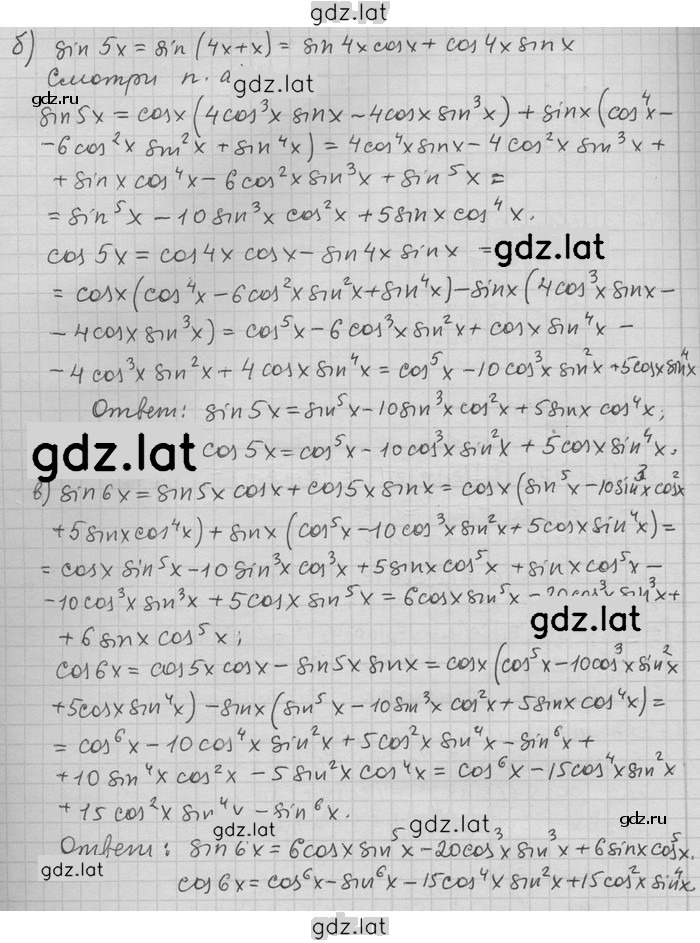 gdz.lat
б) sin 5x = sin (4x+x) = sin 4x cosx + cos 4x sin x
Смотри п. а gdz.lat
gdz.lat
sin5x = cosx (4cos³x sinx - 4cosx sin³x) + sinx (cos⁴x -
- 6cos²x sin²x + sin⁴x) = 4cos⁴x sinx - 4cos²x sin³x +
+ sinx cos⁴x - 6cos²x sin³x + sin⁵x =
= sin⁵x - 10 sin³x cos²x + 5sinx cos⁴x.
cos 5x = cos4x cosx - sin4x sinx = gdz.lat
= cosx (cos⁴x - 6cos²x sin²x + sin⁴x) - sinx (4cos³x sinx -
- 4cosx sin³x) = cos⁵x - 6cos³x sin²x + cosx sin⁴x -
- 4cos³x sin²x + 4cosx sin⁴x = cos⁵x - 10cos³x sin²x + 5cosx sin⁴x
Ответ: sin5x = sin⁵x - 10sin³x cos²x + 5sinx cos⁴x;
gdz.lat cos5x = cos⁵x - 10cos³x sin²x + 5cosx sin⁴x.
в) sin6x = sin5x cosx + cos5x sinx = cosx (sin⁵x - 10sin³x cos²x
+ 5sinx cos⁴x) + sinx (cos⁵x - 10cos³x sin²x + 5cosx sin⁴x) =
= cosx sin⁵x - 10 sin³x cos³x + 5sinx cos⁵x + sinx cos⁵x -
- 10cos³x sin³x + 5cosx sin⁵x = 6cosx sin⁵x - 20cos³x sin³x +
+ 6sinx cos⁵x; gdz.lat
cos6x = cos5x cosx - sin5x sinx = cosx (cos⁵x - 10cos³x sin²x
+ 5cosx sin⁴x) - sinx (sin⁵x - 10sin³x cos²x + 5sinx cos⁴x) =
= cos⁶x - 10cos⁴x sin²x + 5cos²x sin⁴x - sin⁶x +
+ 10 sin⁴x cos²x - 5sin²x cos⁴x = cos⁶x - 15cos⁴x sin²x
+ 15cos²x sin⁴x - sin⁶x.
gdz.lat gdz.lat gdz.lat
Ответ: sin6x = 6cosx sin⁵x - 20cos³x sin³x + 6sinx cos⁵x.
gdz.lat cos6x = cos⁶x - sin⁶x - 15cos⁴x sin²x + 15cos²x sin⁴x
gdz.lat